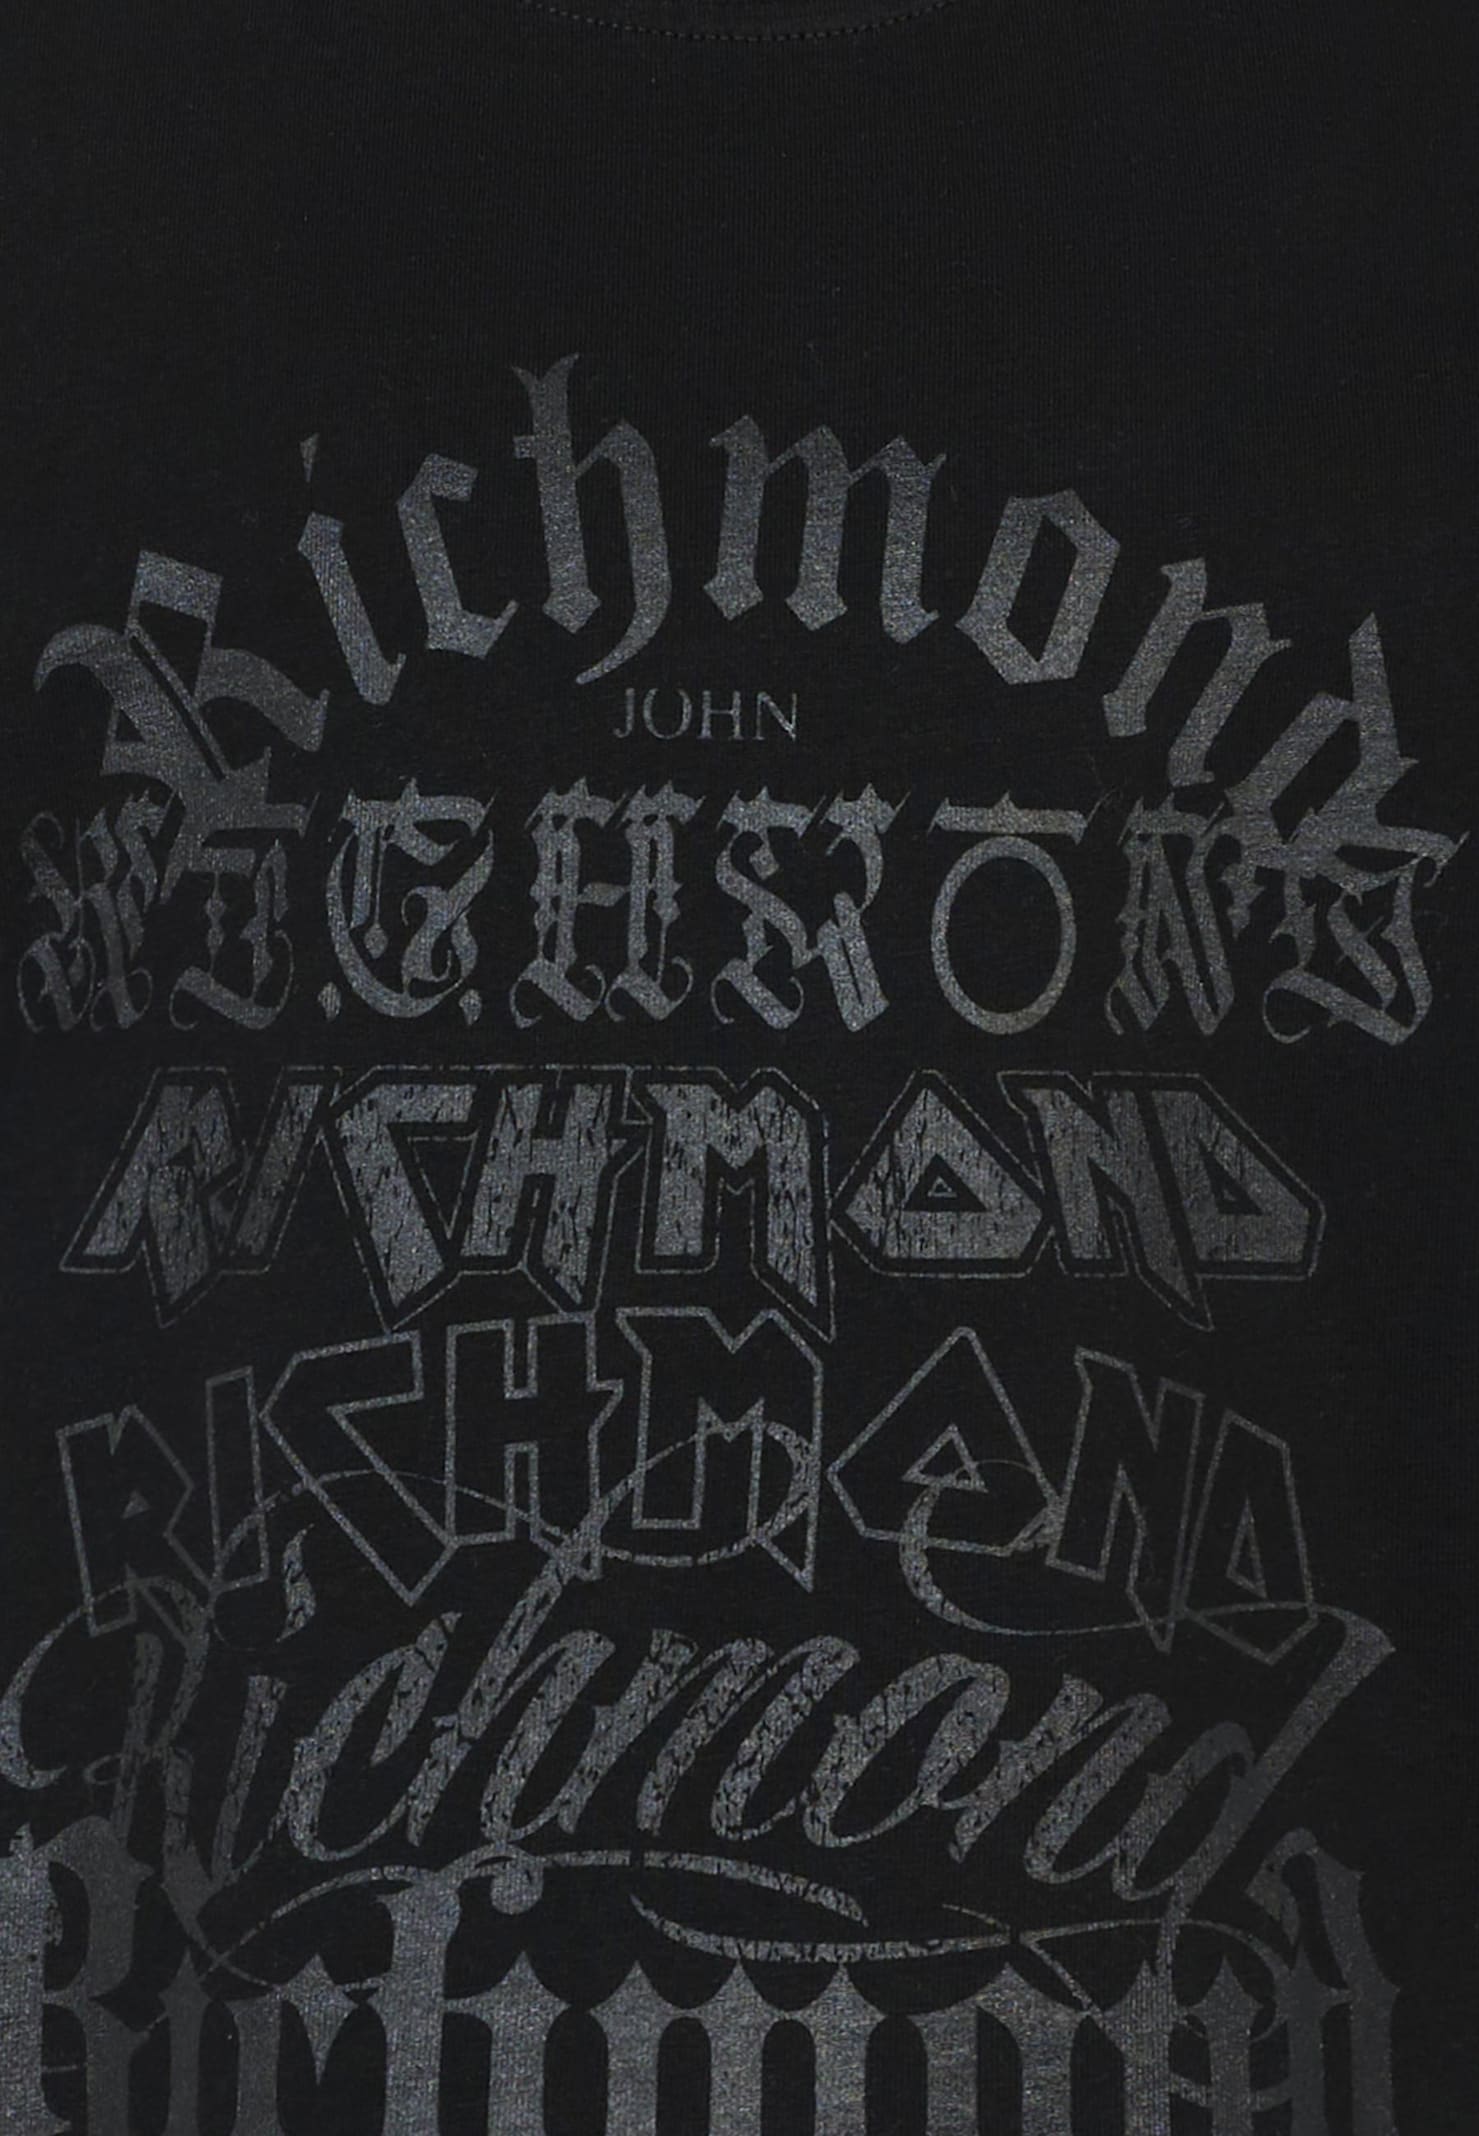 Richmond
JOHN
RICHMOND
RICHMOND
RICHMOND
Richmond
Richmond